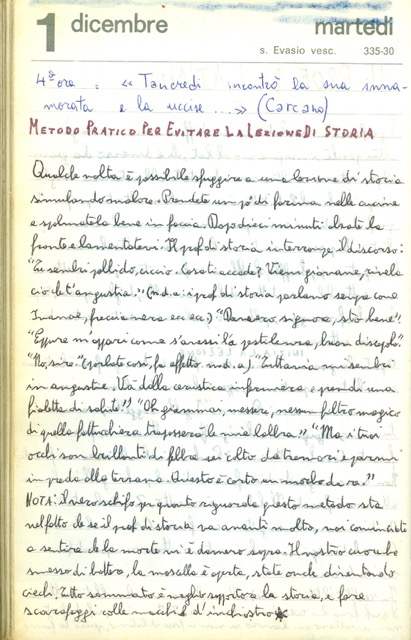 1 dicembre martedì
s. Evasio vesc. 335-30
4ª ora : « Tancredi incontrò la sua inna-
morata e la uccise ... » (Carcano)
METODO PRATICO PER EVITARE LA LEZIONE DI STORIA
Qualche volta è possibile sfuggire a una lezione di storia
simulando malore. Prendete un pò di farina nelle cucine
e spalmatela bene in faccia. Dopo dieci minuti alzate la
fronte e lamentatevi. Il prof di storia interrompe il discorso:
"Tu sembri pallido, ciccio. Cosa ti accade? Vieni giovane, rivela
ciò che t'angustia." (n.d.a: i prof di storia parlano sempre come
Ivanoe, freccia nera ecc ecc.) "Davvero signore, sto bene".
"Eppure m'appari come s'avessi la pestilenza, buon discepolo".
"No, sire" (parlate così, fa effetto n.d.a.) "Tuttavia mi sembri
in angustie. Và dalla cerusica infermiera e prendi una
fialetta di salute!" "Oh grammai, messere, nessun filtro magico
di quella fattucchiera trapasserà le mie labbra." "Ma i tuoi
occhi son brillanti di febbre sei colto da tremori e parmi
in preda alla terzana. Questo è certo un morbo da re."
NOTA: il vero schifo per quanto riguarda questo metodo sta
nel fatto che se il prof di storia va avanti molto, voi cominciate
a sentire che la morte vi è davvero sopra. Il vostro cuore ha
smesso di battere, la mascella è aperta, state anche diventando
ciechi. Tutto sommato è meglio sopportare la storia, e fare
scarafaggi colle macchie d'inchiostro